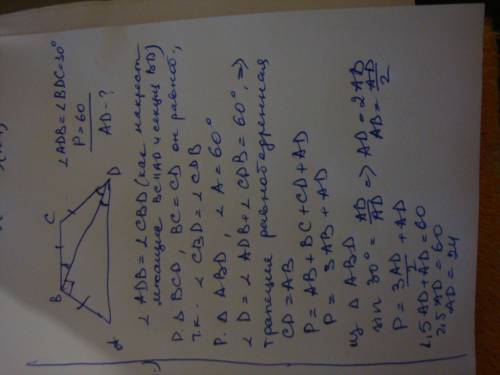 B C
A D
∠ADB=∠BDC=30°
P=60
AD-?
∠ADB=∠CBD (как накрест
лежащие BC∥AD и секущ BD)
P. Δ BCD, BC=CD он равноб.,
т.к. ∠CBD=∠CDB
P. Δ ABD, ∠A=60°
∠D=∠ADB+∠CDB=60°, ⇒
трапеция равнобедренная
CD=AB
P=AB+BC+CD+AD
P=3AB+AD
из Δ ABD
sin 30°= AD/AD ⇒ AD=2AB
AB=AD/2
P=3AD/2+AD
1.5AD+AD=60
2.5AD=60
AD=24